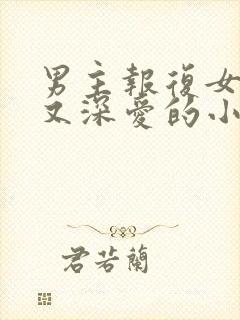 男主報復女
又深愛的小
君若蘭